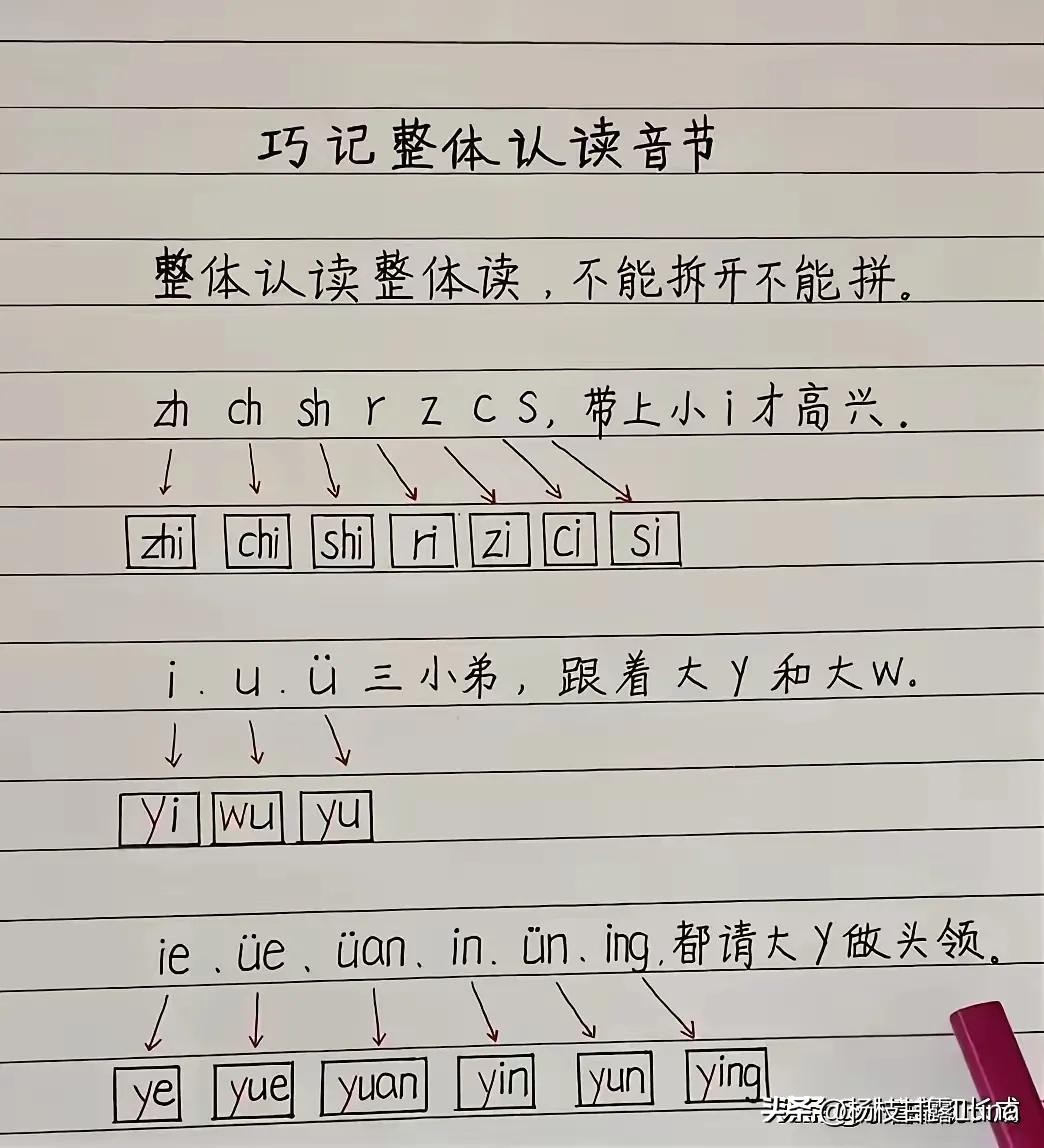 巧记整体认读音节
整体认读整体读，不能拆开不能拼。
zh ch sh r z c s, 带上小i才高兴.
zhi chi shi ri zi ci si
i . u . ü 三小弟，跟着大y和大w.
yi wu yu
ie、üe、üan、in、ün、ing,都请大y做头领。
ye yue yuan yin yun ying
头条@杨枝甘露